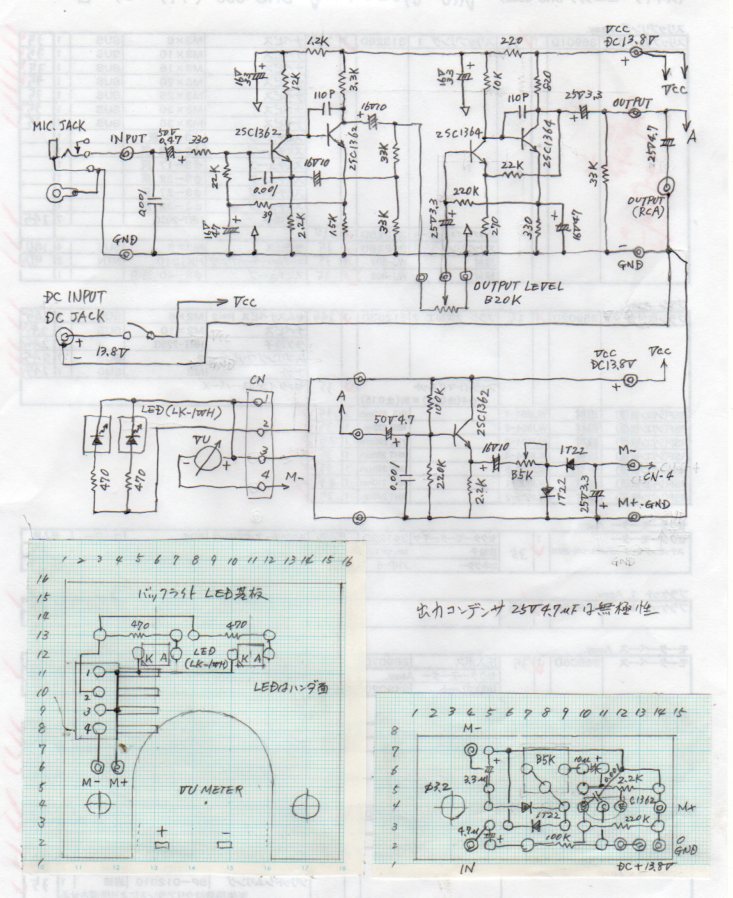 1.2K
220
VCC
DC13.8V
+
VCC
16V
33
+
12K
3.3K
16V
33
+
10K
820
110P
110P
16V10
25V3.3
OUTPUT
A
MIC. JACK
INPUT
50V
0.47
330
2SC1362
2SC1362
2SC1364
2SC1364
25V4.7
0.001
22K
0.001
16V10
33K
22K
33K
39
220K
16V
47
2.2K
1.5K
33K
25V3.3
270
330
16V47
OUTPUT
(RCA)
GND
-
GND
OUTPUT LEVEL
B20K
DC INPUT
DC JACK
VCC
+
-
13.8V
CN
VCC
DC13.8V
VCC
+
LED(LK-1WH)
1
2
3
4
VU
-
+
M-
470
470
A
50V4.7
100K
2SC1362
0.001
220K
2.2K
16V10
B5K
1T22
1T22
25V3.3
M-
CN-4
M+
-GND
1 2 3 4 5 6 7 8 9 10 11 12 13 14 15 16
16
15
14
13
12
11
10
9
8
7
6
5
4
3
2
1
バックライト LED基板
470
470
LED
(LK-1WH)
K A
K A
LEDはハンダ面
1
2
3
4
M- M+
VU METER
+
-
出力コンデンサ 25V4.7μFは無極性
1 2 3 4 5 6 7 8 9 10 11 12 13 14 15
8
7
6
5
4
3
2
1
M-
B5K
10μ
0.001
3.3μ
2.2K
φ3.2
C1362
M+
1T22
220K
4.7μ
100K
GND
IN
DC+13.8V